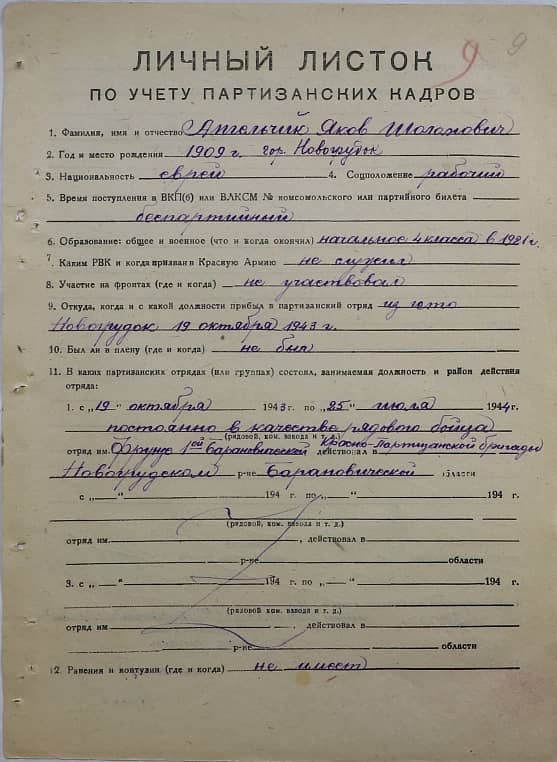 9 9
ЛИЧНЫЙ ЛИСТОК
ПО УЧЕТУ ПАРТИЗАНСКИХ КАДРОВ
1. Фамилия, имя и отчество Ангельчик Яков Шоломович
2. Год и место рождения 1909 г. гор. Новогрудок
3. Национальность еврей 4. Соцположение рабочий
5. Время поступления в ВКП(б) или ВЛКСМ № комсомольского или партийного билета
беспартийный
6. Образование: общее и военное (что и когда окончил) начальное 4 класса в 1921 г.
7. Каким РВК и когда призван в Красную Армию не служил
8. Участие на фронтах (где и когда) не участвовал
9. Откуда, когда и с какой должности прибыл в партизанский отряд из гето
Новогрудок 19 октября 1943 г.
10. Был ли в плену (где и когда) не был
11. В каких партизанских отрядах (или группах) состоял, занимаемая должность и район действия
отряда:
1. с „19" октября 1943 г. по „25" июля 1944 г.
постоянно в качестве рядового бойца
(рядовой, ком. взвода и т. д.)
отряд им. Фрунзе 1ой Барановической Красно-Партизанской бригады действовал в
Новогрудском р-не Барановической области
с „—" 194 г. по „—" 194 г.
(рядовой, ком. взвода и т. д.)
отряд им. , действовал в
р-не области
3. с „—" 194 г. по „—" 194 г.
(рядовой, ком. взвода и т. д.)
отряд им , действовал в
р-не области
12. Ранения и контузии (где и когда) не имеет